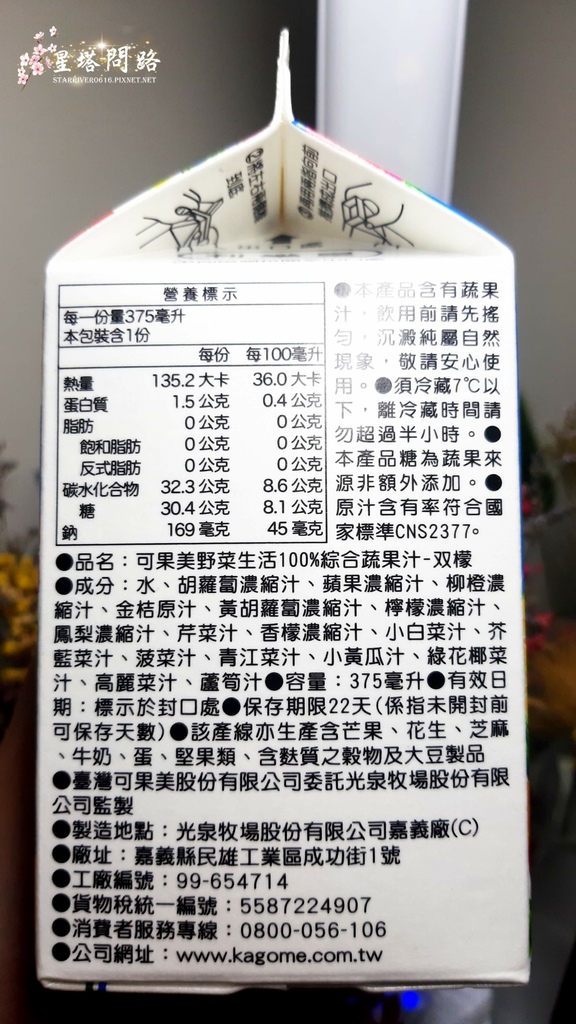 星塔問路
STARRIVER0616.PIXNET.NET
營養標示
每一份量375毫升
本包裝含1份
每份 每100毫升
熱量 135.2大卡 36.0大卡
蛋白質 1.5公克 0.4公克
脂肪 0公克 0公克
飽和脂肪 0公克 0公克
反式脂肪 0公克 0公克
碳水化合物 32.3公克 8.6公克
糖 30.4公克 8.1公克
鈉 169毫克 45毫克
●本產品含有蔬果
汁，飲用前請先搖
勻，沉澱純屬自然
現象，敬請安心使
用。●須冷藏7℃以
下，離冷藏時間請
勿超過半小時。●
本產品糖為蔬果來
源非額外添加。●
原汁含有率符合國
家標準CNS2377。
●品名：可果美野菜生活100%綜合蔬果汁-双檬
●成分：水、胡蘿蔔濃縮汁、蘋果濃縮汁、柳橙濃
縮汁、金桔原汁、黃胡蘿蔔濃縮汁、檸檬濃縮汁、
鳳梨濃縮汁、芹菜汁、香檬濃縮汁、小白菜汁、芥
藍菜汁、菠菜汁、青江菜汁、小黃瓜汁、綠花椰菜
汁、高麗菜汁、蘆筍汁●容量：375毫升●有效日
期：標示於封口處●保存期限22天(係指未開封前
可保存天數)●該產線亦生產含芒果、花生、芝麻
、牛奶、蛋、堅果類、含麩質之穀物及大豆製品
●臺灣可果美股份有限公司委託光泉牧場股份有限
公司監製
●製造地點：光泉牧場股份有限公司嘉義廠(C)
●廠址：嘉義縣民雄工業區成功街1號
●工廠編號：99-654714
●貨物稅統一編號：5587224907
●消費者服務專線：0800-056-106
●公司網址：www.kagome.com.tw